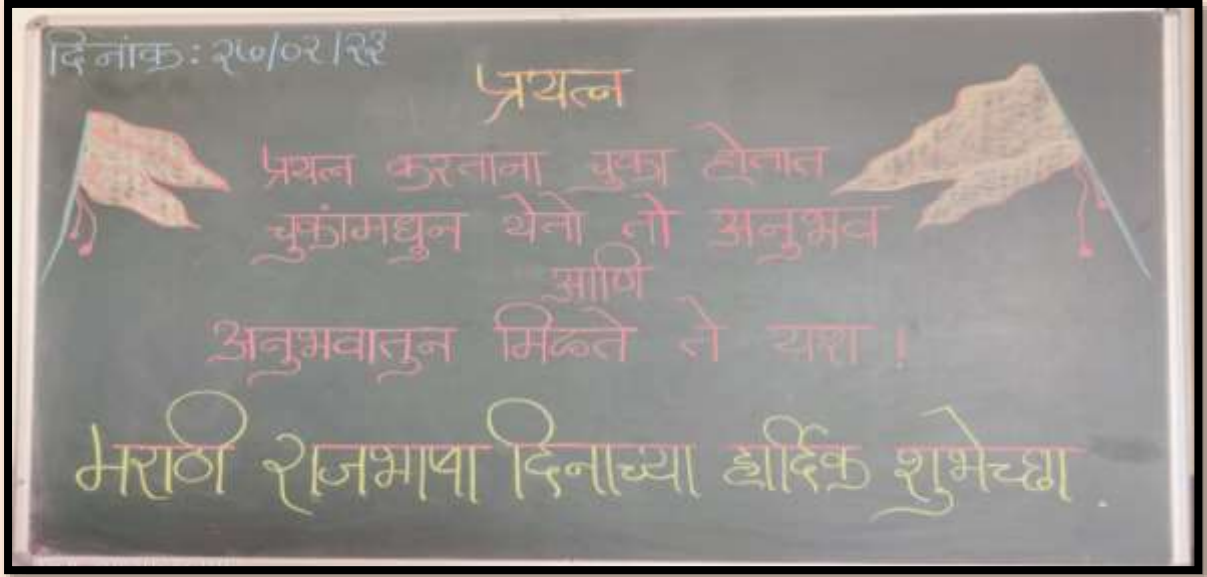 दिनांक: २७/०२/२३
प्रयत्न
प्रयत्न करताना चुका होतात
चुकांमधून येतो तो अनुभव
आणि
अनुभवातुन मिळते ते यश !
मराठी राजभाषा दिनाच्या हार्दिक शुभेच्छा .